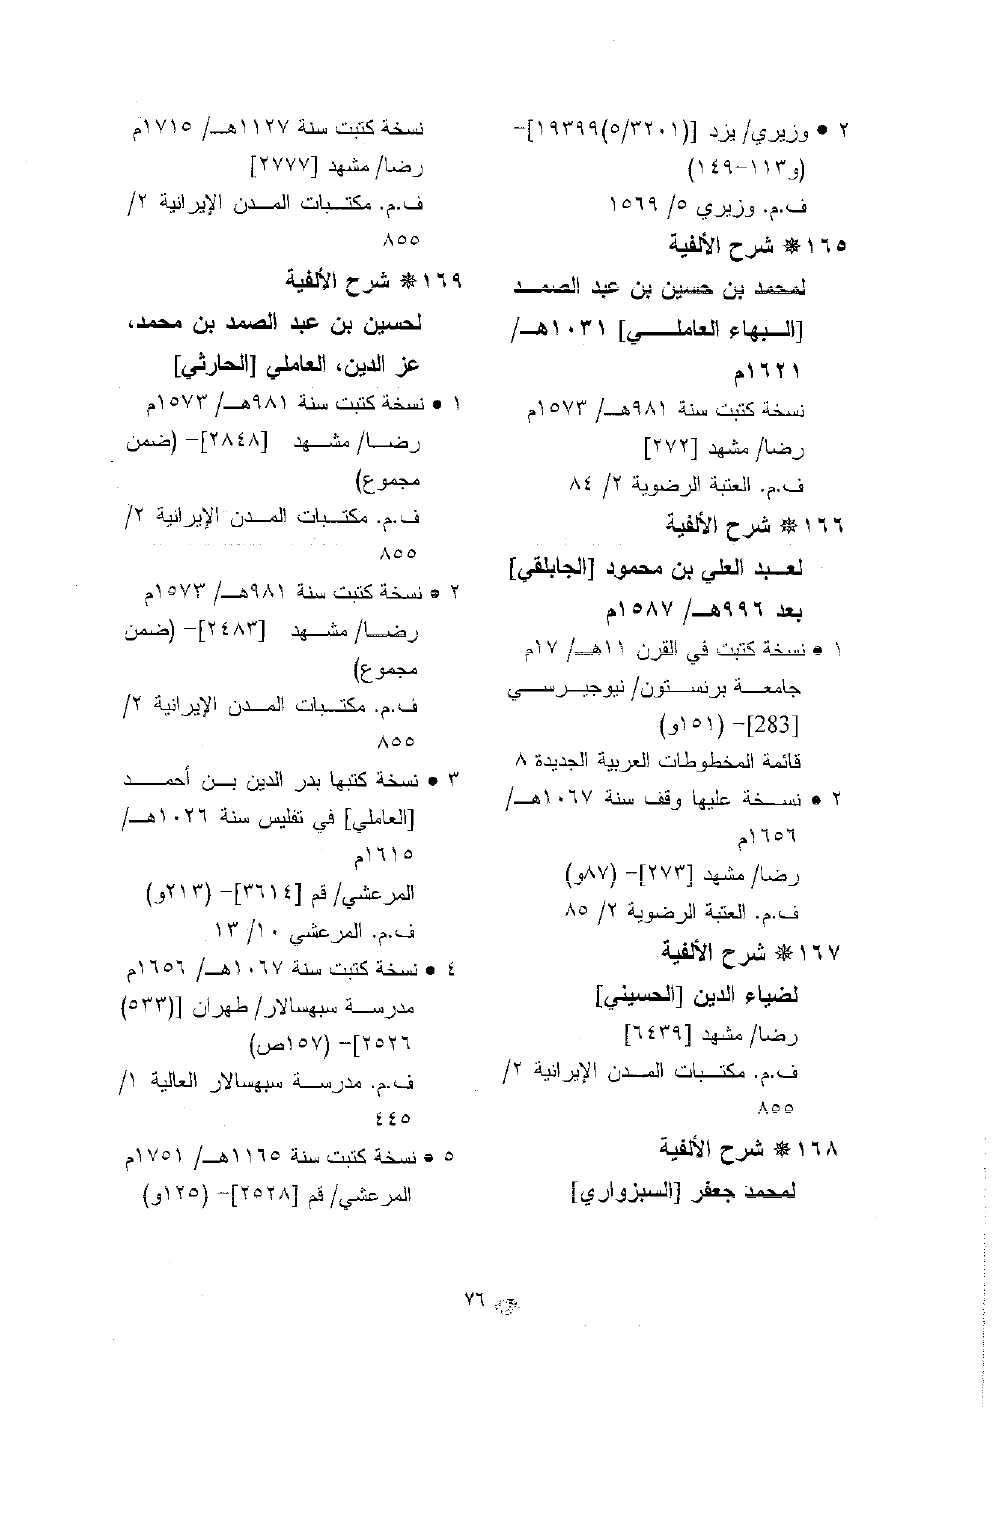 ٢ • وزيري/ يزد [(٥/٣٢٠١)١٩٣٩٩]-
(و١١٣-١٤٩)
ف.م. وزيري ٥/ ١٥٦٩
١٦٥ * شرح الألفية
لمحمد بن حسين بن عبد الصمد
[البهاء العاملي] ١٠٣١هـ/
١٦٢١م
نسخة كتبت سنة ٩٨١هـ/ ١٥٧٣م
رضا/ مشهد [٢٧٢]
ف.م. العتبة الرضوية ٢/ ٨٤
١٦٦ * شرح الألفية
لعبد العلي بن محمود [الجابلقي]
بعد ٩٩٦هـ/ ١٥٨٧م
١ • نسخة كتبت في القرن ١١هـ/ ١٧م
جامعة برنستون/ نيوجيرسي
[283]- (١٥١و)
قائمة المخطوطات العربية الجديدة ٨
٢ • نسخة عليها وقف سنة ١٠٦٧هـ/
١٦٥٦م
رضا/ مشهد [٢٧٣]- (٨٧و)
ف.م. العتبة الرضوية ٢/ ٨٥
١٦٧ * شرح الألفية
لضياء الدين [الحسيني]
رضا/ مشهد [٦٤٣٩]
ف.م. مكتبات المدن الإيرانية ٢/
٨٥٥
١٦٨ * شرح الألفية
لمحمد جعفر [السبزواري]
نسخة كتبت سنة ١١٢٧هـ/ ١٧١٥م
رضا/ مشهد [٢٧٧٧]
ف.م. مكتبات المدن الإيرانية ٢/
٨٥٥
١٦٩ * شرح الألفية
لحسين بن عبد الصمد بن محمد،
عز الدين، العاملي [الحارثي]
١ • نسخة كتبت سنة ٩٨١هـ/ ١٥٧٣م
رضا/ مشهد [٢٨٤٨]- (ضمن
مجموع)
ف.م. مكتبات المدن الإيرانية ٢/
٨٥٥
٢ • نسخة كتبت سنة ٩٨١هـ/ ١٥٧٣م
رضا/ مشهد [٢٤٨٣]- (ضمن
مجموع)
ف.م. مكتبات المدن الإيرانية ٢/
٨٥٥
٣ • نسخة كتبها بدر الدين بن أحمد
[العاملي] في تفليس سنة ١٠٢٦هـ/
١٦١٥م
المرعشي/ قم [٣٦١٤]- (٢١٣و)
ف.م. المرعشي ١٠/ ١٣
٤ • نسخة كتبت سنة ١٠٦٧هـ/ ١٦٥٦م
مدرسة سبهسالار/ طهران [(٥٣٣)
٢٥٢٦]- (١٥٧ص)
ف.م. مدرسة سبهسالار العالية ١/
٤٤٥
٥ • نسخة كتبت سنة ١١٦٥هـ/ ١٧٥١م
المرعشي/ قم [٢٥٢٨]- (١٢٥و)
٧٦